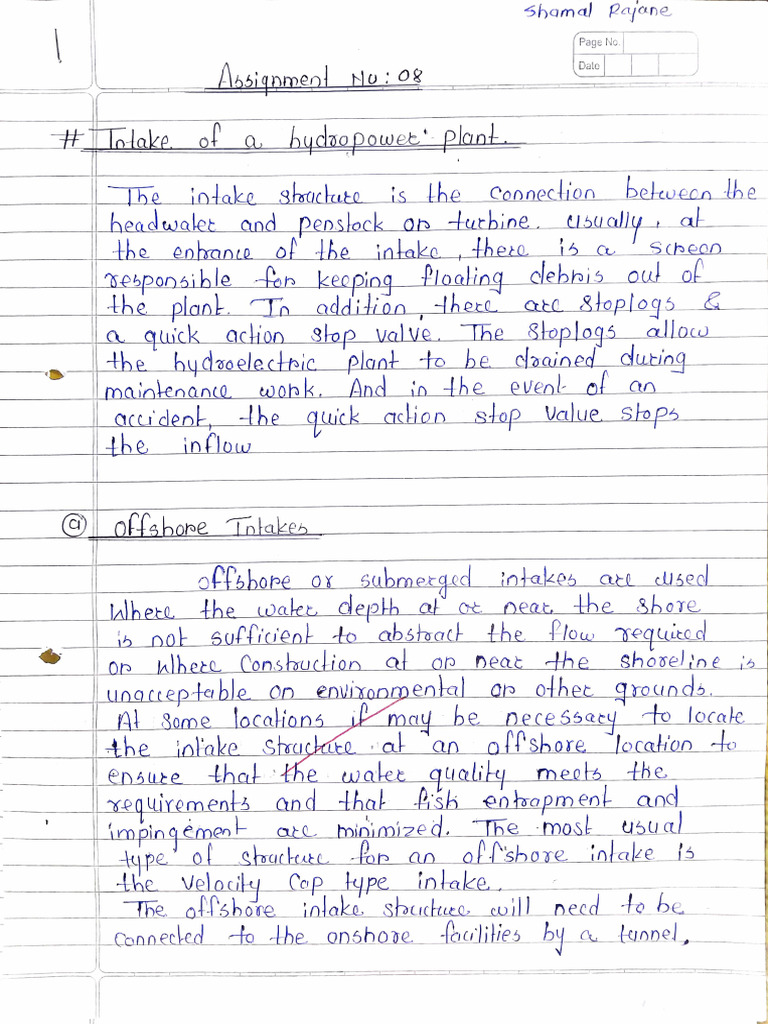 Shamal Rajane
1
Page No.
Date
Assignment No: 08
# Intake of a hydropower plant.
The intake structure is the connection between the
headwater and penstock or turbine. Usually, at
the entrance of the intake, there is a screen
responsible for keeping floating debris out of
the plant. In addition, there are stoplogs &
a quick action stop valve. The stoplogs allow
the hydroelectric plant to be drained during
maintenance work. And in the event of an
accident, the quick action stop value stops
the inflow
ⓐ Offshore Intakes
Offshore or submerged intakes are used
Where the water depth at or near the shore
is not sufficient to abstract the flow required
or Where Construction at or near the shoreline is
unacceptable on environmental or other grounds.
At some locations if may be necessary to locate
the intake structure at an offshore location to
ensure that the water quality meets the
requirements and that fish entrapment and
impingement are minimized. The most usual
type of structure for an offshore intake is
the velocity Cap type intake.
The offshore intake structure will need to be
connected to the onshore facilities by a tunnel,